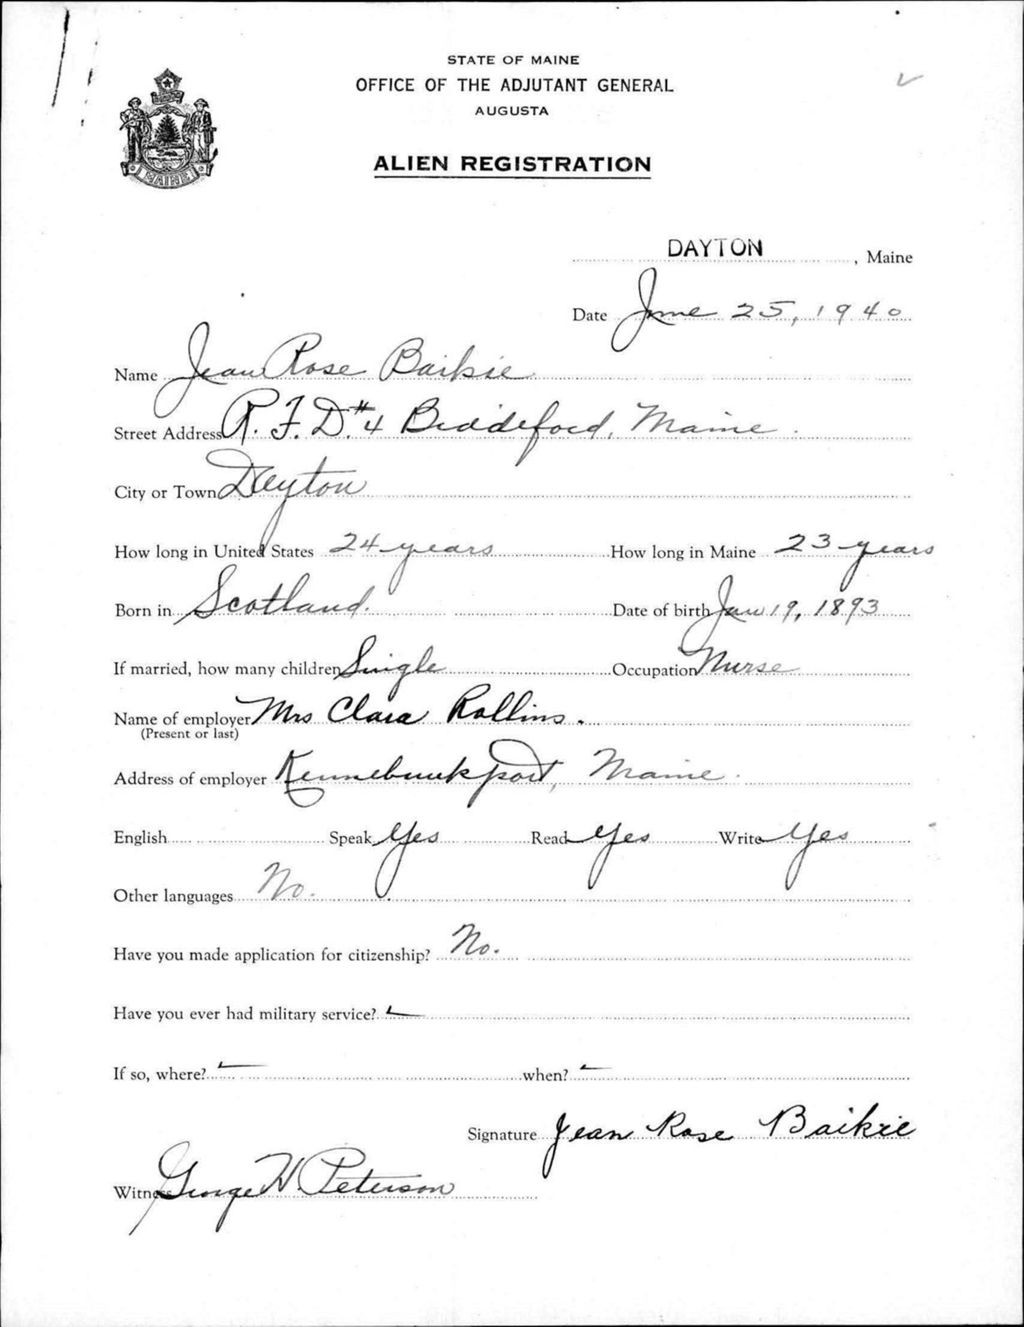 STATE OF MAINE
OFFICE OF THE ADJUTANT GENERAL
AUGUSTA
ALIEN REGISTRATION
MAINE
DAYTON, Maine
Date June 25, 1940
Name Jean Rose Baikie
Street Address R.F.D. #4 Biddeford, Maine.
City or Town Dayton
How long in United States 24 years How long in Maine 23 years
Born in Scotland. Date of birth Jan 19, 1893
If married, how many children Single Occupation Nurse
Name of employer Mrs Clara Rollins.
(Present or last)
Address of employer Kennebunkport, Maine.
English Speak Yes Read Yes Write Yes
Other languages No.
Have you made application for citizenship? No.
Have you ever had military service? –
If so, where? – when? –
Signature Jean Rose Baikie
Witness George H. Peterson